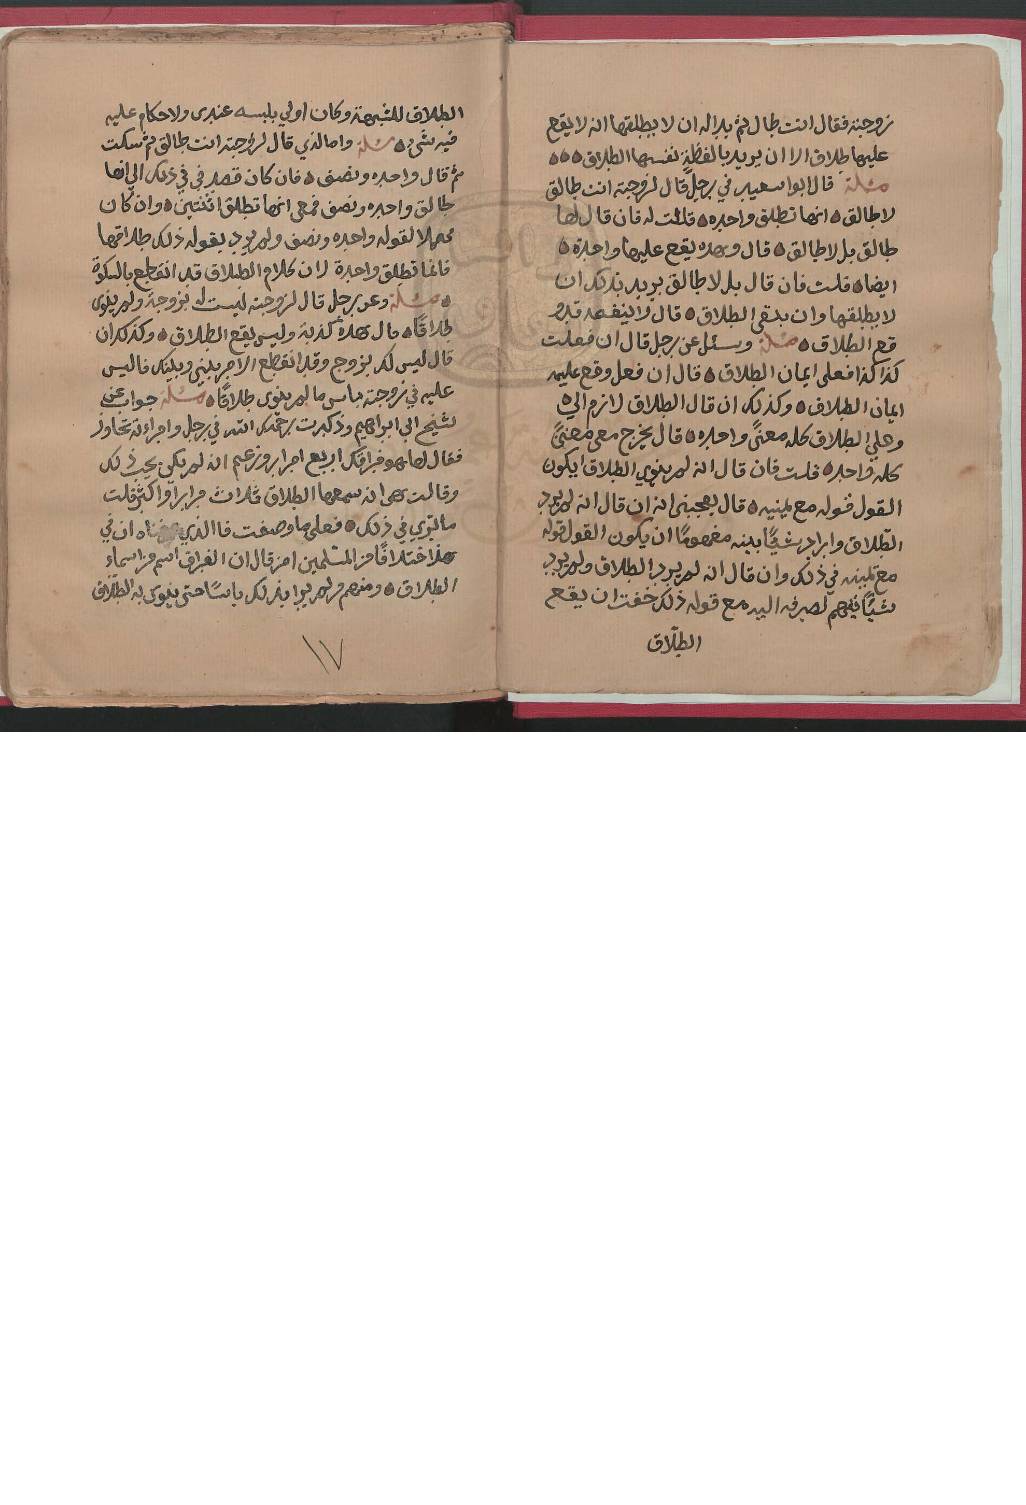 زوجته فقال انت طال ثم بدا له ان لا يطلقها انه لا يقع
عليها طلاق الا ان يريد بالفظة نفسها الطلاق ٥٥٥
مسئلة قال ابو سعيد في رجل قال لزوجته انت طالق
لا طالق ٥ انها تطلق واحده ٥ قلت له فان قال لها
طالق بل لا طالق ٥ قال وهذه يقع عليها واحدة ٥
ايضا ٥ قلت فان قال بل لا طالق يريد بذلك ان
لا يطلقها وان ينفى الطلاق ٥ قال لا ينفعه قد و
قع الطلاق ٥ مسئلة وسئل عن رجل قال ان فعلت
كذا كذا فعلي ايمان الطلاق ٥ قال ان فعل وقع عليه
ايمان الطلاق ٥ وكذلك ان قال الطلاق لازم الي ٥
وعلي الطلاق كله معنًى واحده ٥ قال يخرج معي معنىً
كله واحد ٥ قلت فان قال انه لم ينوي الطلاق ايكون
القول قوله مع يمينه ٥ قال يعجبنى انه ان قال انه لم يرد
الطلاق واراد شيئًا بينه مفهومًا ان يكون القول قوله
مع يمينه في ذلك وان قال انه لم يرد الطلاق ولم يرد
شيئًا يفهم لصرفه اليه مع قوله ذلك خفت ان يقع
الطلاق
الطلاق للشبهة وكان اولي بلبسه عندى ولا حكام عليه
فيه شيء ٥ مسئلة واما الذي قال لزوجته انت طالق ثم سكت
ثم قال واحده ونصف ٥ فان كان قصد في في ذلك الي انها
طالق واحده ونصف فمعي انها تطلق اثنتين ٥ وان كان
مهملا لقوله واحده ونصف ولم يرد بقوله ذلك طلاقها
فانما تطلق واحدة لان كلام الطلاق قد انقطع بالسكوة
٥ مسئلة وعن رجل قال لزوجته ليست له بزوجة ولم ينوى
طلاقًا ٥ قال هذه كذبة وليس يقع الطلاق ٥ وكذلك ان
قال ليس لك بزوج وقد انقطع الامر بيني وبينك فاليس
عليه في زوجته باس ما لم ينوى طلاقًا ٥ مسئلة جواب عن
لشيخ ابي ابراهيم وذكرت رحمك الله في رجل وامراءته تحاوز
فقال لها هو فراقك اربع امرار وزعم انه لم يكن يحب ذلك
وقالت هى انه سمعها الطلاق ثلاث مرارا واكثر قلت
ما ترى في ذلك ٥ فعلى ما وصفت فا الذي ان في
هذا اختلافًا من المسلمين من قال ان الفراق اسم من اسماء
الطلاق ٥ ومنهم من لم يرا بذلك باسًا حتى ينوى به الطلاق
١٧